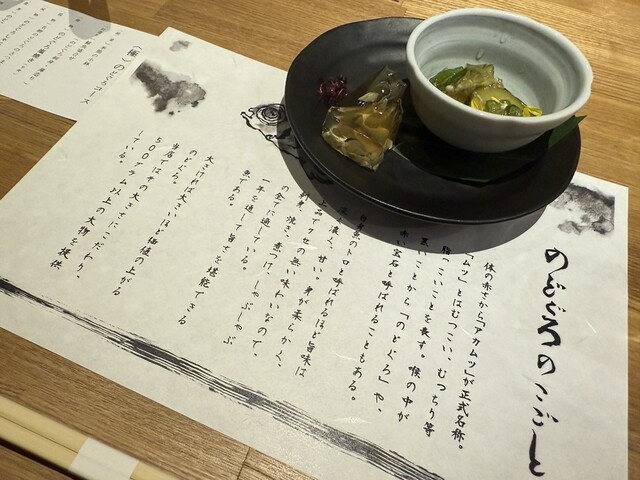 のどぐろのこごと
体の赤さから「アカムツ」が正式名称。
「ムツ」とはむつこい、むつちり等
脂っこいことを表す。喉の中が
黒いことから「のどぐろ」や、
赤い宝石と呼ばれることもある。
白身魚のトロと呼ばれるほど旨味は
濃く、甘い。身が柔らかく、
上品でクセの無い味わいなので、
刺身、焼き、煮つけ、しゃぶしゃぶ
の全てに適している。
一年を通して旨さを堪能できる
魚である。
大きければ大きいほど価値の上がる
のどぐろ。
当店ではその大きさにこだわり、
500グラム以上の大物を提供
している。
(極)のどぐろコース